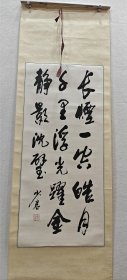 長煙一空皓月
千里浮光躍金
静影沈璧